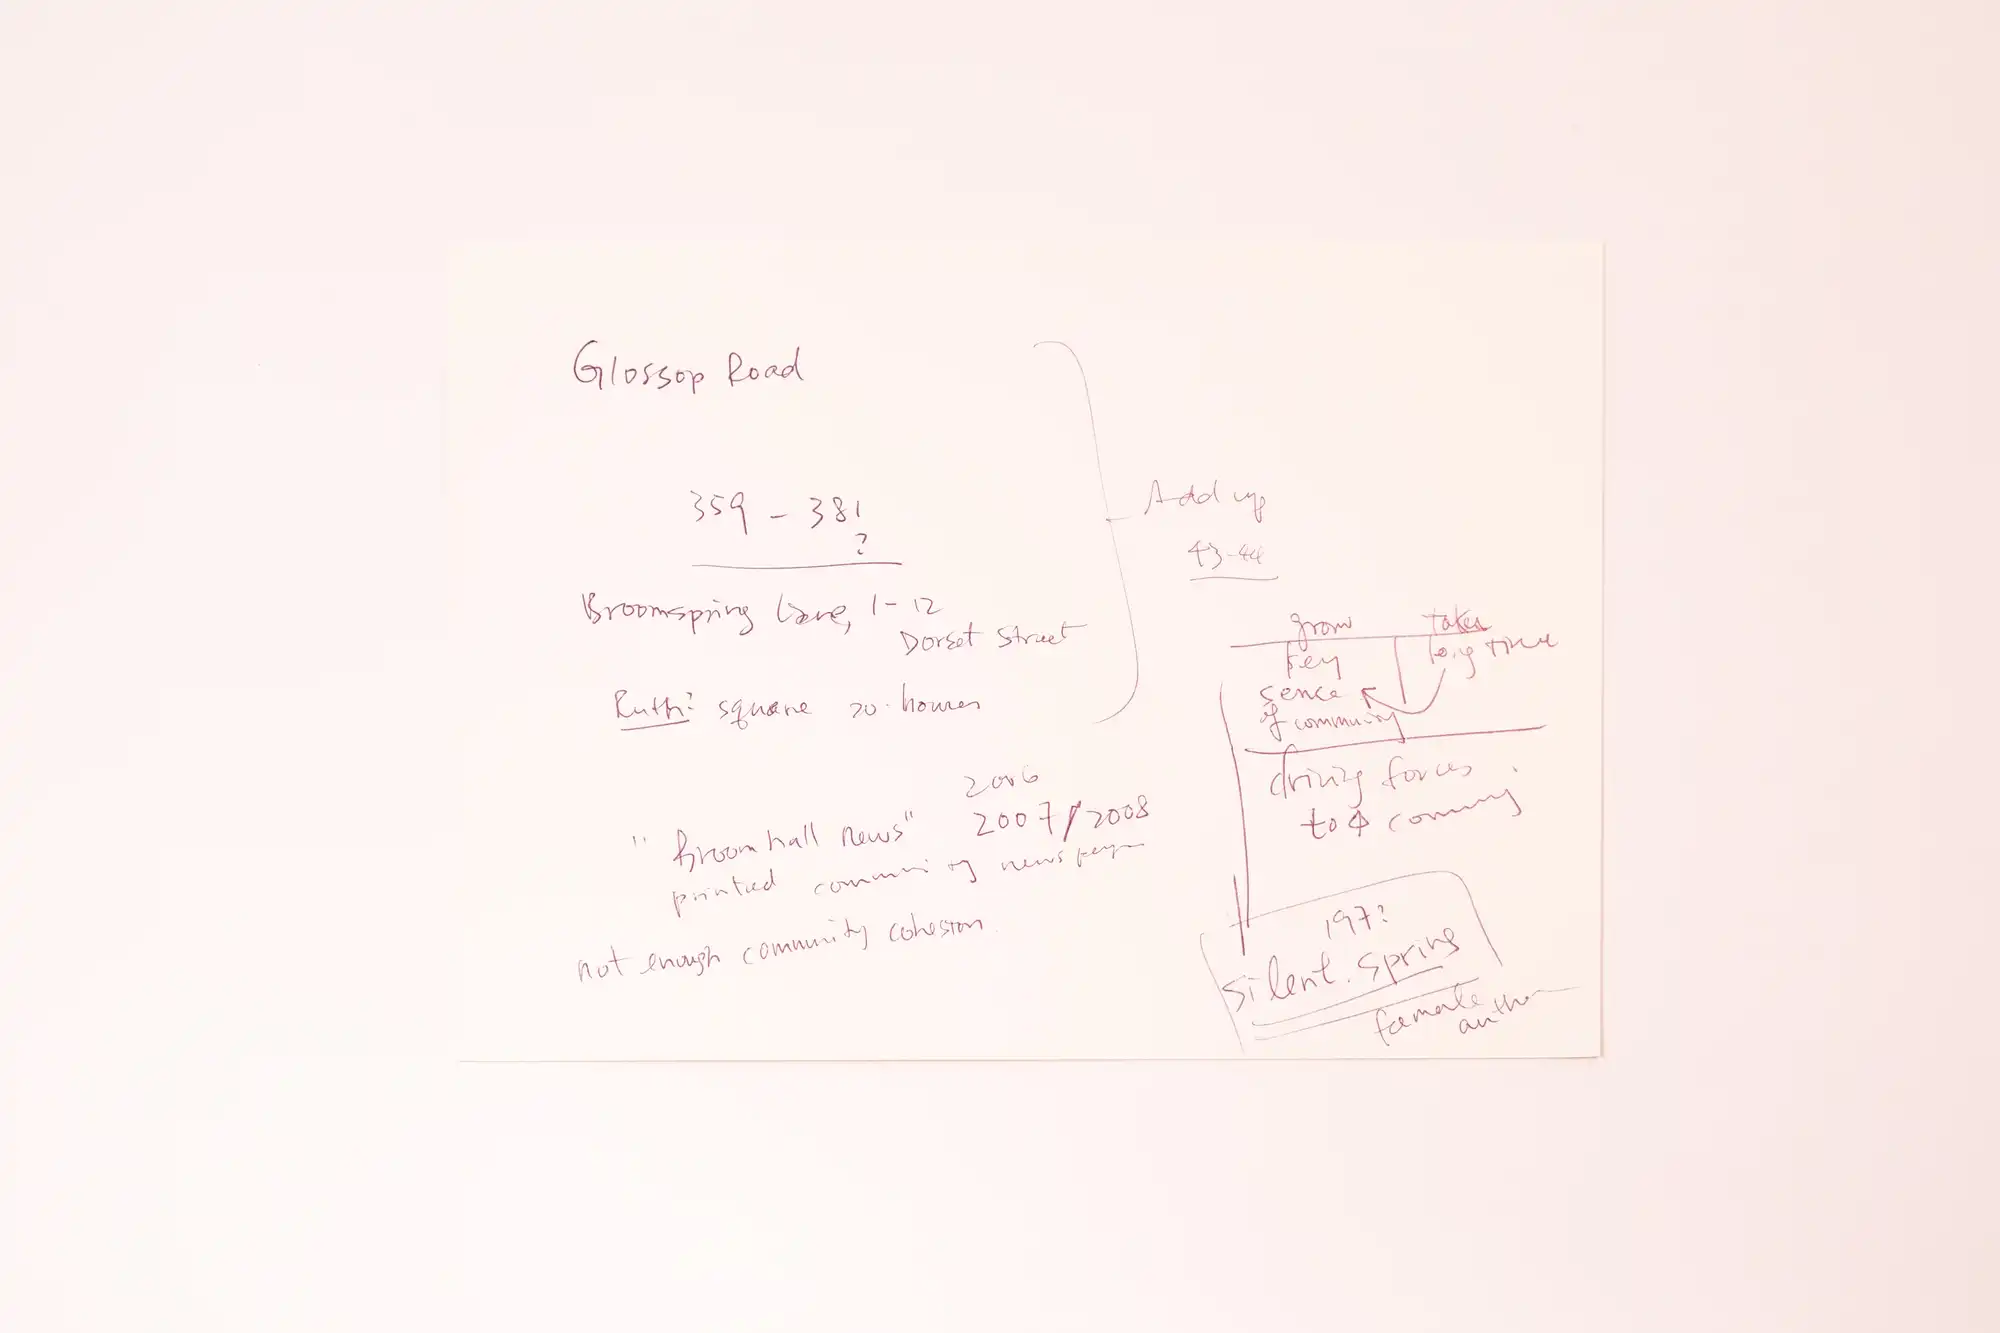 Glossop Road
359 - 381
?
Broomspring Lane, 1-12
Dorset Street
Ruth: square 20 houses
Add up
43-44
2006
"Broomhall news" 2007/2008
printed community newspaper
not enough community cohesion.
grow
key
sence
of community
taken
long time
driving forces
to
197?
silent. spring
female
author